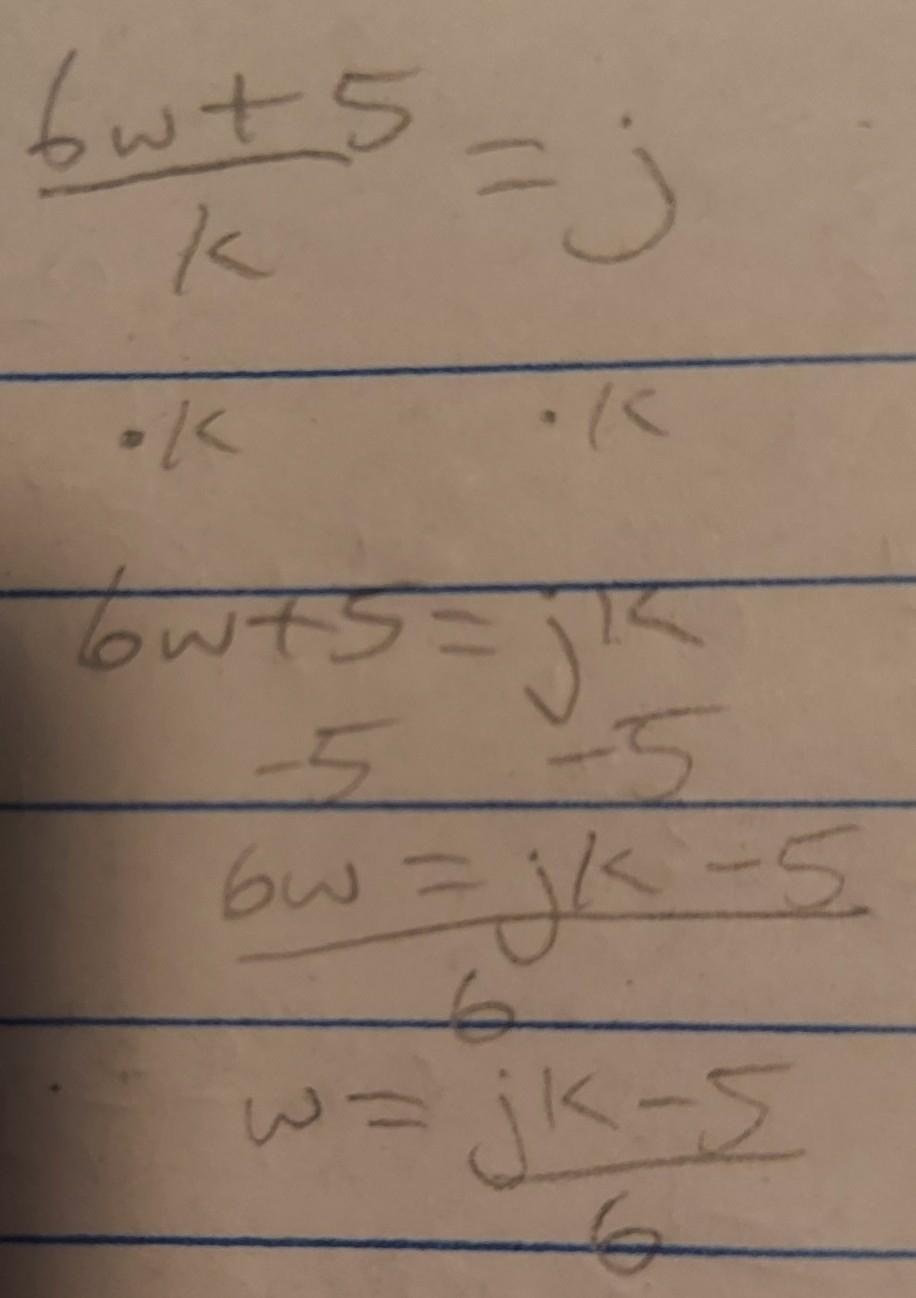 6w+5
k
= j
·k ·k
6w+5=jk
-5 -5
6w = jk -5
6
w = jk-5
6